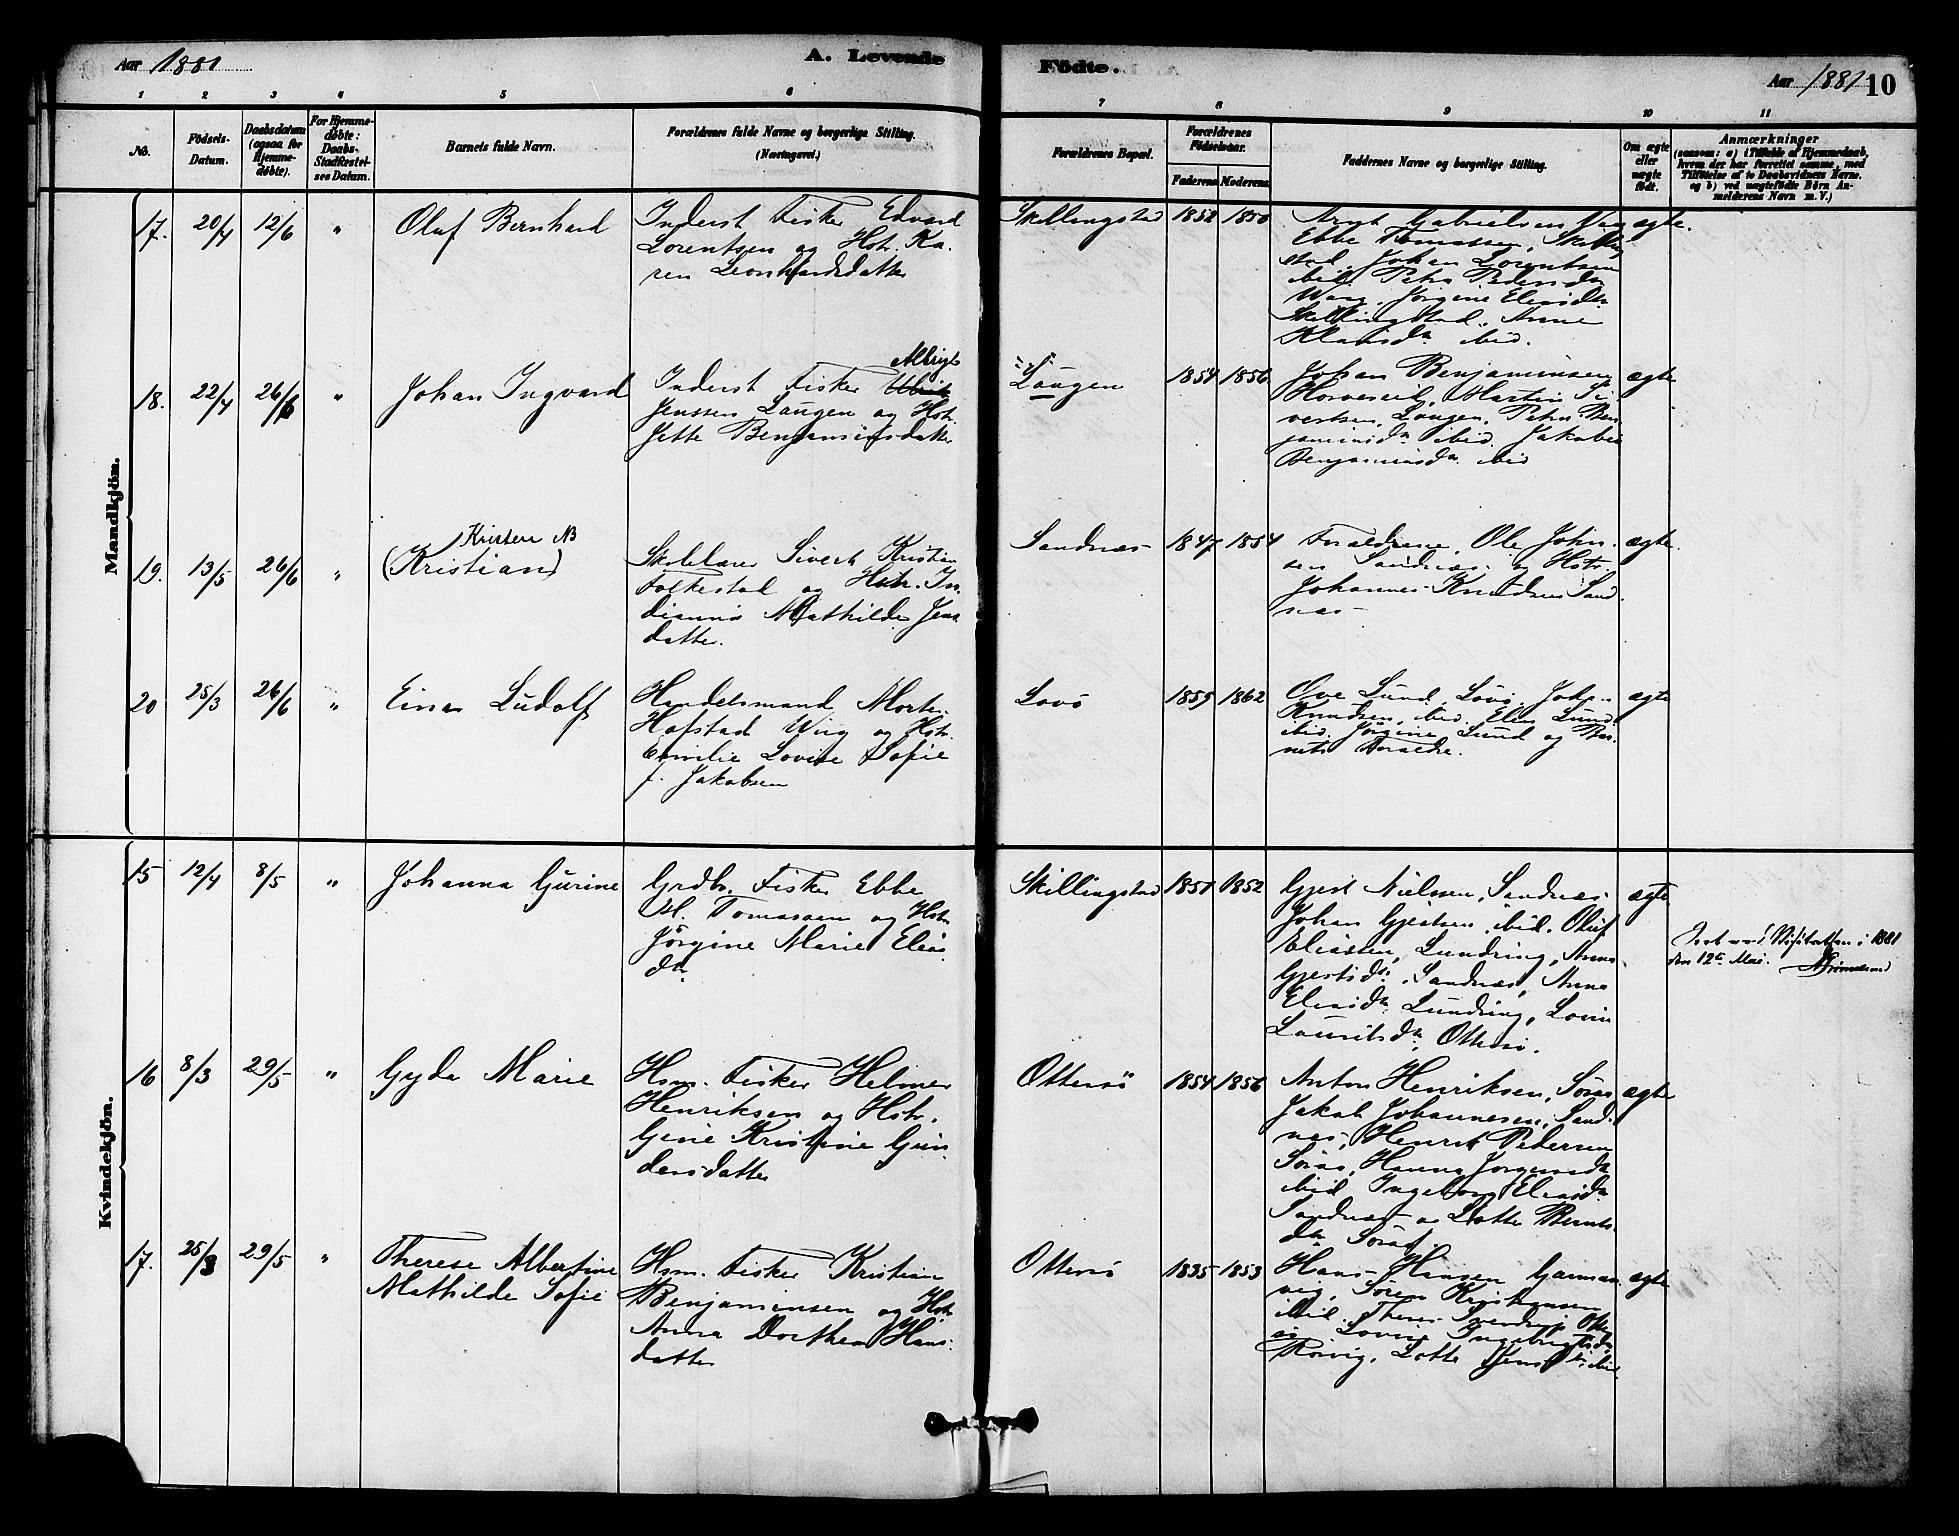 Aar 1881
A. Levende
Födte.
Aar 1881 10
1 2 3 4 5 6 7 8 9 10 11
No.
Födsels-
Datum.
Daabsdatum
(ogsaa for
Hjemme-
døbte).
For Hjemme-
døbte:
Daabs-
Stadfæstel-
ses Datum.
Barnets fulde Navn.
Forældrenes fulde Navne og borgerlige Stilling.
(Næringsvei.)
Forældrenes Bopæl.
Forældrenes
Födselsaar.
Faderens Moderens
Faddernes Navne og borgerlige Stilling.
Om ægte
eller
uægte
født.
Anmærkninger
(saasom: a) i Tilfælde af Hjemmedaab,
hvem der har forrettet samme, med
Tilföielse af to Daabsvidners Navne.
og b) ved uægtefödte Börn An-
melderens Navn m. V.)
Mandkjön.
17. 20/4 12/6 " Oluf Bernhard
Inderst Fisker Edvard
Lorentsen og Hstr. Ka-
ren Leonhardsdatter
Skillingstad 1852 1850
Arnt Gabrielsen
Ebbe Tomassen, Skilling
stad, Johan Lorentsen
ibid. Petra Pedersdr
Jörgine Eliasdr
Skillingstad, Anne
Klausdr ibid.
ægte.
18. 22/4 26/6 " Johan Ingvard
Albrigt
Inderst Fisker
Jenssen Laugen og Hstr.
Jette Benjaminsdatter
Laugen 1854 1856
Johan Benjaminsen
Horvereid, Martin Si-
vertsen, Laugen, Petra Ben-
jaminsdr ibid. Jakobia
Benjaminsdr ibid
ægte
19. 13/5 26/6 "
Kristen NB
(Kristian)
Skolelærer Sivert Kristian
Folkestad og Hstr. In-
dianna Mathilde Jens
datter.
Sandnæs 1847 1854
Forældrene, Ole John-
sen Sandnæs og Hstr.
Johannes Knudsen Sand-
næs
ægte.
20 25/3 26/6 " Einar Ludolf
Handelsmand Morten
Hofstad Wiig og Hstr.
Emilie Lovise Sofie
f. Jakobsen
Lovö 1859 1862
Ove Lund, Lovö, Johan
Knudsen, ibid. Elen Lund
ibid. Jörgine Lund og Bar-
nets Forældre.
ægte
Kvindekjön.
15 12/4 8/5 " Johanna Gurine
Grdbr. Fisker Ebbe
M. Tomassen og Hstr.
Jörgine Marie Elias
dr.
Skillingstad 1851 1852
Gjert Nielsen, Sandnæs
Johan Gjertsen ibid. Oluf
Eliassen, Lundring, Anna
Gjertsdr. Sandnæs, Anna
Eliasdr. Lundring, Lovise
Lauritsdr, Ottersö.
ægte
Seet ved Visitatsen i 1881
den 12te Mai.
16 8/3 29/5 " Gyda Marie
Hsm. Fisker Helmer
Henriksen og Hstr.
Gjene Kristine Gun-
dersdatter
Ottersö 1854 1856
Anton Henriksen, Söraa
Jakob Johannesen, Sand-
næs, Henrik Pedersen
Söraa, Hanna Jörgensdr
ibid Ingeborg Eliasdr
Sandnæs og Lotte Bernts-
dr Söraa.
ægte
17. 25/3 29/5 " Therese Albertine
Mathilde Sofie
Hsm. Fisker Kristian
Benjaminsen og Hstr.
Anna Dorthea Hans-
datter
Ottersö 1835 1853
Hans Hansen Garman-
vig, Sören Kristiansen
ibid. Otter
sö Lovise Ingebrigtsdr
Rörvig, Lotte ibid.
ægte